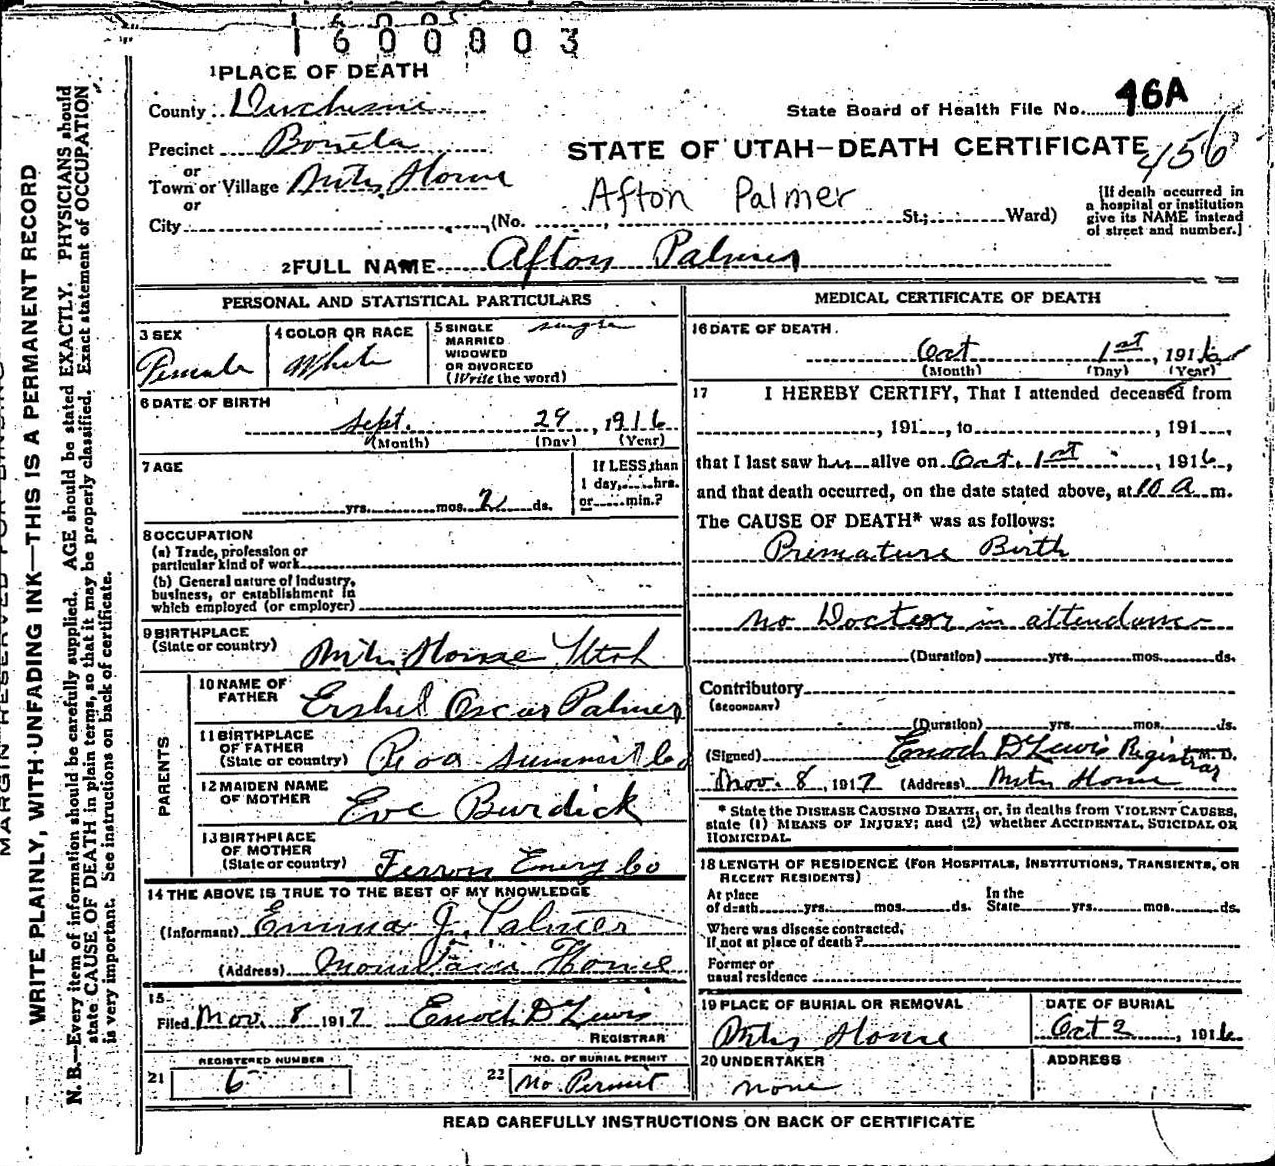 1600803
1 PLACE OF DEATH
County Duchesne
State Board of Health File No. 46A
Precinct Boneta
STATE OF UTAH—DEATH CERTIFICATE 456
or
Town or Village Mtn Home
Afton Palmer
[If death occurred in
a hospital or institution
give its NAME instead
of street and number.]
or
City (No. St; Ward)
2 FULL NAME Afton Palmer
PERSONAL AND STATISTICAL PARTICULARS
3 SEX
Female
4 COLOR OR RACE
White
5 SINGLE
MARRIED
WIDOWED
OR DIVORCED
(Write the word)
single
6 DATE OF BIRTH
Sept. 29, 1916
(Month) (Day) (Year)
7 AGE
yrs. mos. 2 ds.
If LESS than
1 day, hrs.
or min.?
8 OCCUPATION
(a) Trade, profession or
particular kind of work
(b) General nature of industry,
business, or establishment in
which employed (or employer)
9 BIRTHPLACE
(State or country) Mtn Home Utah
PARENTS
10 NAME OF
FATHER Ershel Oscar Palmer
11 BIRTHPLACE
OF FATHER
(State or country) Peoa Summit Co
12 MAIDEN NAME
OF MOTHER Eve Burdick
13 BIRTHPLACE
OF MOTHER
(State or country) Ferron Emery Co
14 THE ABOVE IS TRUE TO THE BEST OF MY KNOWLEDGE
(Informant) Emma J. Palmer
(Address) Mountain Home
15
Filed Nov. 8 1917 Enoch D Lewis
REGISTRAR
REGISTERED NUMBER
21 6
NO. OF BURIAL PERMIT
22 No Permit
MEDICAL CERTIFICATE OF DEATH
16 DATE OF DEATH
Oct 1st, 1916
(Month) (Day) (Year)
17 I HEREBY CERTIFY, That I attended deceased from
, 191 , to , 191 ,
that I last saw her alive on Oct. 1st, 1916,
and that death occurred, on the date stated above, at 10 a m.
The CAUSE OF DEATH* was as follows:
Premature Birth
no Doctor in attendance
(Duration) yrs. mos. ds.
Contributory
(SECONDARY)
(Duration) yrs. mos. ds.
(Signed) Enoch D Lewis Registrar M. D.
Nov. 8, 1917 (Address) Mtn Home
* State the DISEASE CAUSING DEATH, or, in deaths from VIOLENT CAUSES,
state (1) MEANS OF INJURY; and (2) whether ACCIDENTAL, SUICIDAL OR
HOMICIDAL.
18 LENGTH OF RESIDENCE (FOR HOSPITALS, INSTITUTIONS, TRANSIENTS, OR
RECENT RESIDENTS)
At place
of death yrs. mos. ds.
In the
State yrs. mos. ds.
Where was disease contracted,
if not at place of death?
Former or
usual residence
19 PLACE OF BURIAL OR REMOVAL
Mtn Home
DATE OF BURIAL
Oct 2, 1916
20 UNDERTAKER
none
ADDRESS
READ CAREFULLY INSTRUCTIONS ON BACK OF CERTIFICATE
MARGIN RESERVED FOR BINDING
WRITE PLAINLY, WITH UNFADING INK—THIS IS A PERMANENT RECORD
N. B.—Every item of information should be carefully supplied. AGE should be stated EXACTLY. PHYSICIANS should
state CAUSE OF DEATH in plain terms, so that it may be properly classified. Exact statement of OCCUPATION
is very important. See instructions on back of certificate.